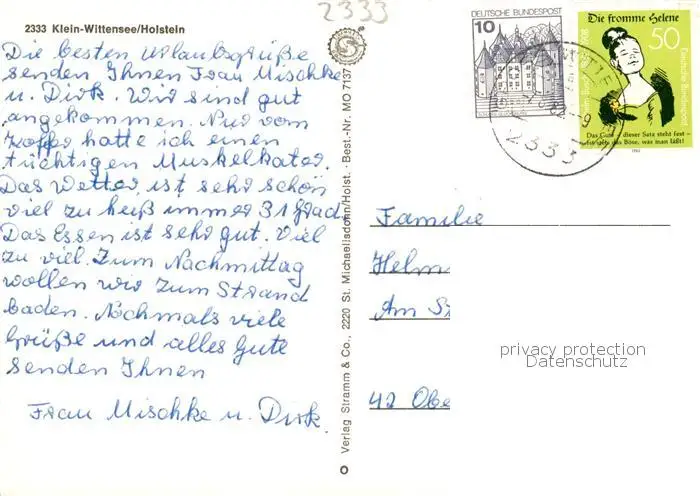 2333 Klein-Wittensee/Holstein
2333
Die besten Urlaubsgrüße
senden Ihnen Frau Mischke
u. Dirk. Wir sind gut
angekommen. Nur vom
koffer hatte ich einen
tüchtigen Muskelkater.
Das Wetter ist sehr schön
viel zu heiß immer 31 Grad
Das Essen ist sehr gut. Viel
zu viel. Zum Nachmittag
wollen wir zum Strand
baden. Nochmals viele
Grüße und alles Gute
senden Ihnen
Frau Mischke u. Dirk.
Verlag Stramm & Co., 2220 St. Michaelisdonn/Holst. · Best.-Nr. MO 7137
DEUTSCHE BUNDESPOST
10
Die fromme Helene
50
Deutsche Bundespost
Das Gute – dieser Satz steht fest –
ist stets das Böse, was man läßt!
2333
Familie
Helm
Am St
42 Obe
privacy protection
Datenschutz